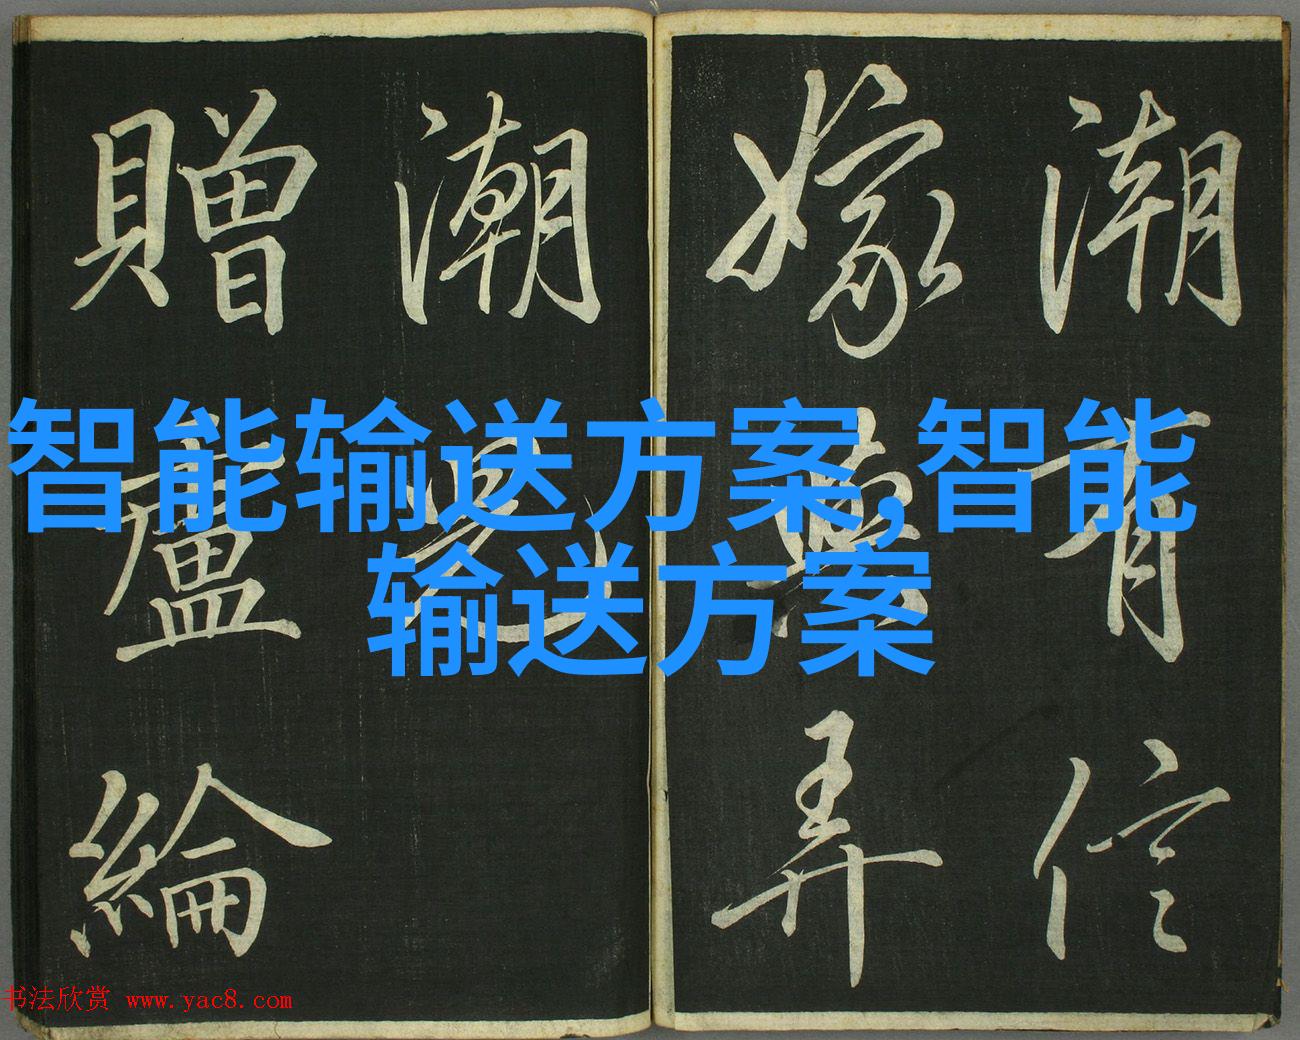 潮有信
嫁弄
潮兒
贈盧綸
智能输送方案,智能
输送方案
书法欣赏 www.yac8.com